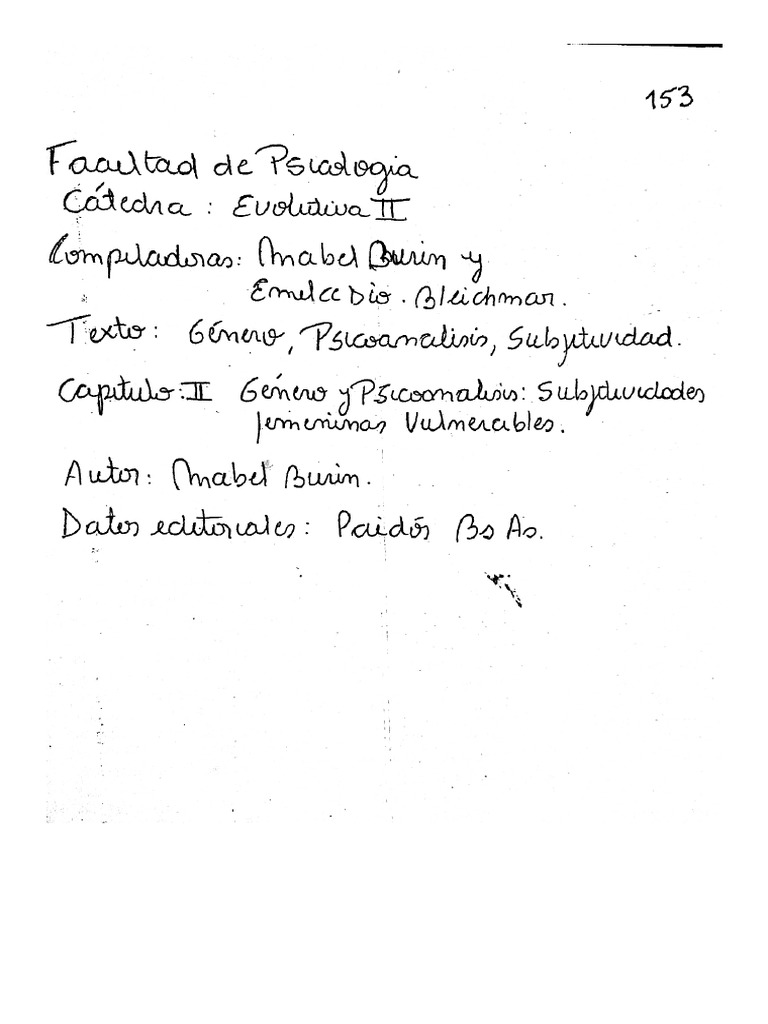 153
Facultad de Psicologia
Cátedra : Evolutiva II
Compiladoras: Mabel Burin y
Emilce Dio. Bleichmar.
Texto: Género, Psicoanalisis, Subjetividad.
Capitulo: II Género y Psicoanalisis: Subjetividades
femeninas Vulnerables.
Autor: Mabel Burin.
Datos editoriales: Paidós Bs As.